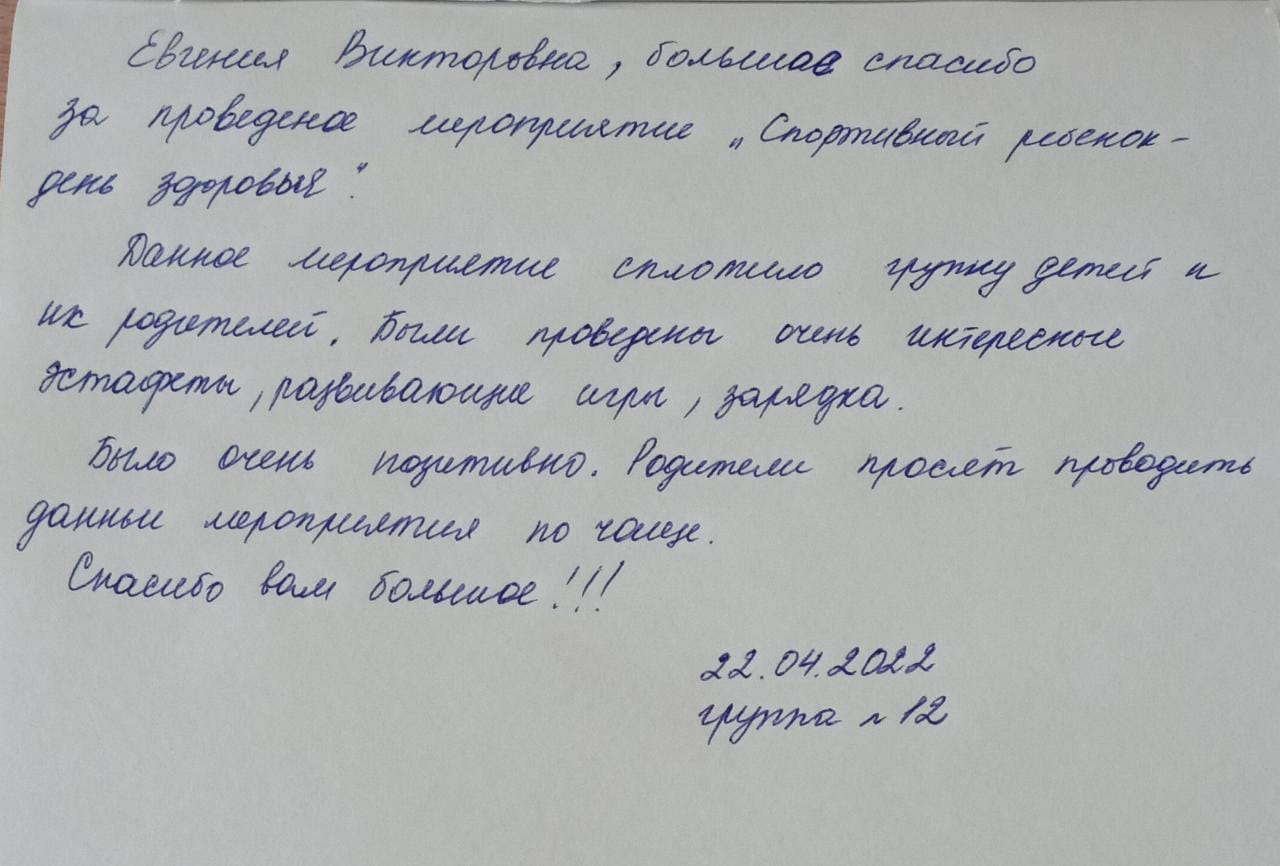 Евгения Викторовна, большое спасибо
за проведеное мероприятие „Спортивный ребенок -
день здоровья".
Данное мероприятие сплотило группу детей и
их родителей. Были проведены очень интересные
эстафеты, развивающие игры, зарядка.
Было очень позитивно. Родители просят проводить
данные мероприятия по чаще.
Спасибо вам большое!!!
22.04.2022
группа № 12